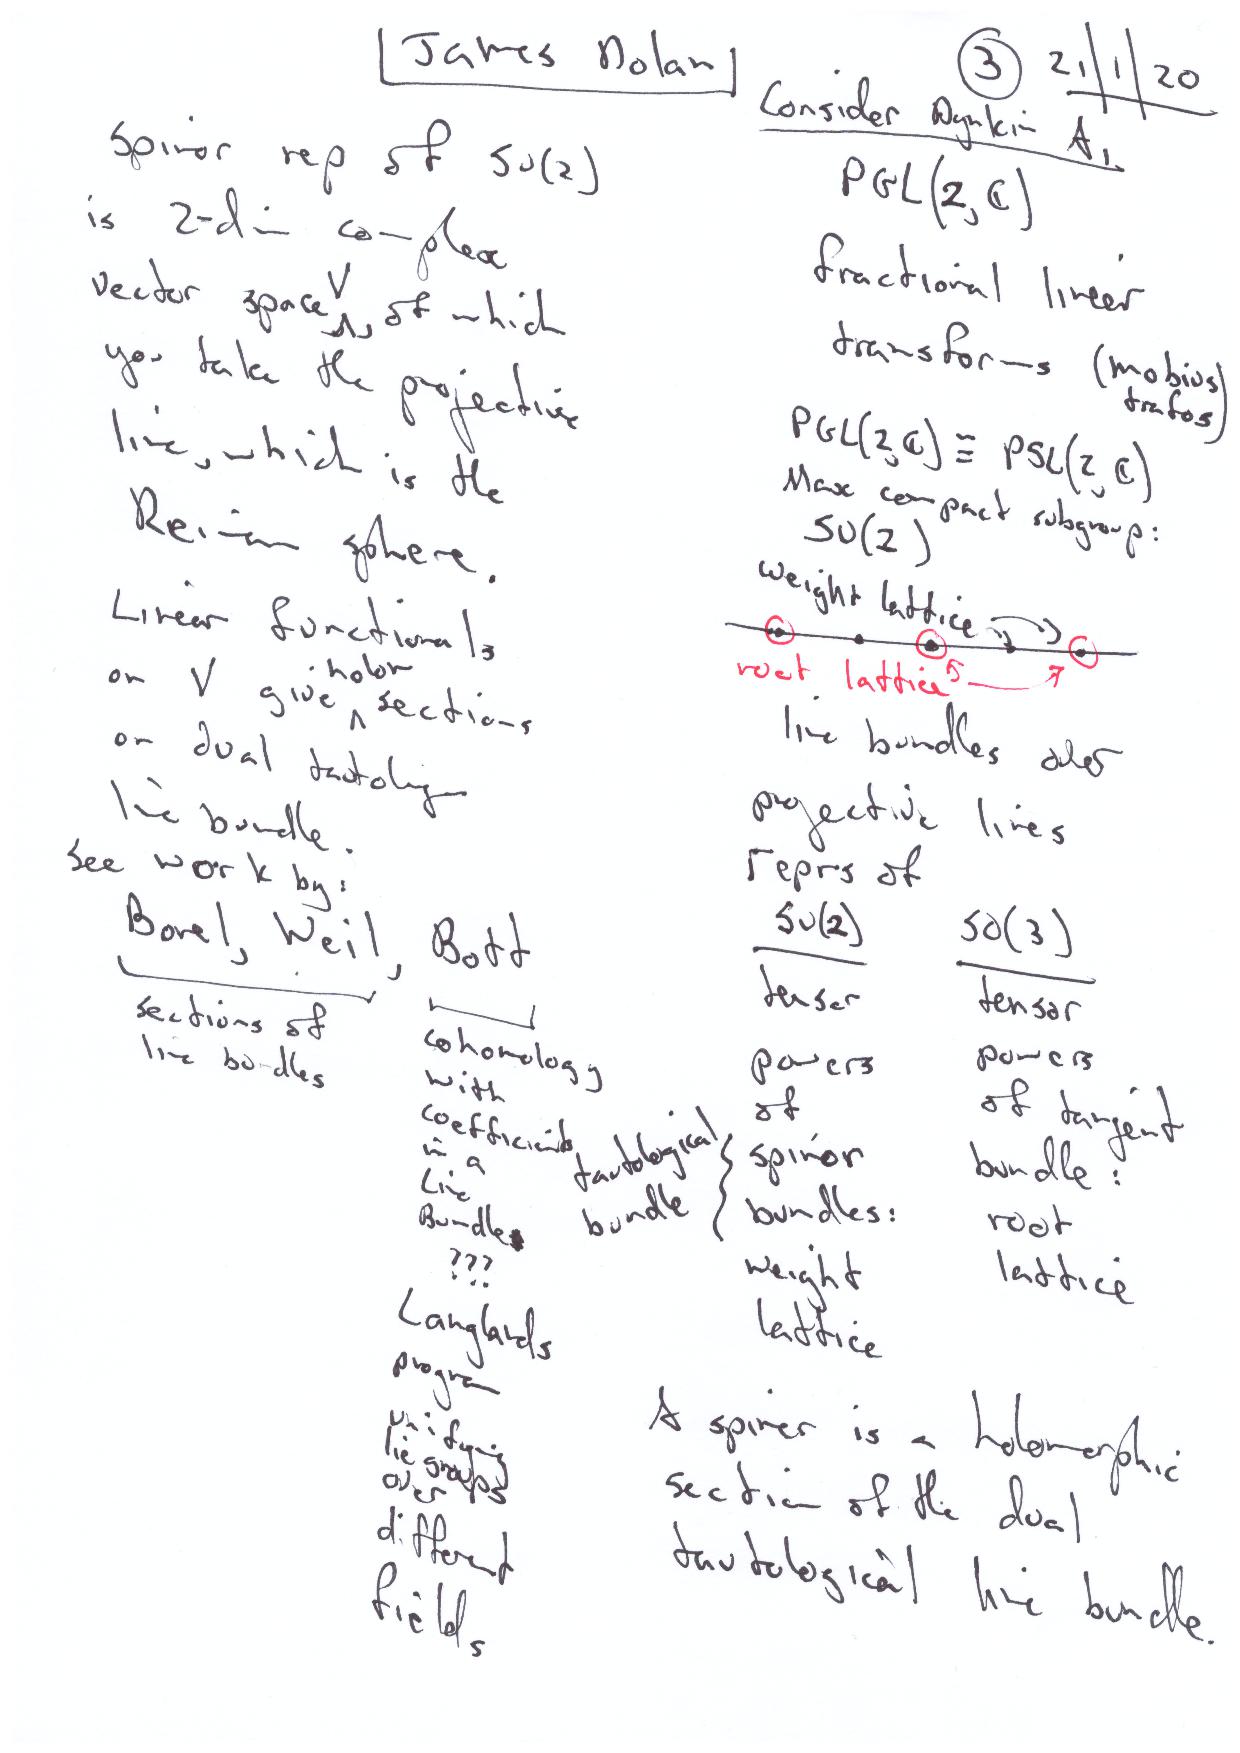 James Dolan
3 21/1/20
Spinor rep of SU(2)
is 2-dim complex
vector space V, of which
you take the projective
line, which is the
Reiman sphere.
Linear functionals
on V give holom sections
on dual tautolog
line bundle.
See work by:
Borel, Weil, Bott
sections of
line bundles
cohomology
with
coefficients
in a
Line
Bundle
???
Langlands
program
unifying
lie groups
over
different
fields
Consider Dynkin A1
PGL(2, ℂ)
fractional linear
transforms (mobius
trafos)
PGL(2, ℂ) ≡ PSL(2, ℂ)
Max compact subgroup:
SU(2)
weight lattice
root lattice
line bundles over
projective lines
reprs of
SU(2)
tensor
powers
of
spinor
bundles:
weight
lattice
tautological
bundle
SO(3)
tensor
powers
of tangent
bundle:
root
lattice
A spinor is a holomorphic
section of the dual
tautological line bundle.